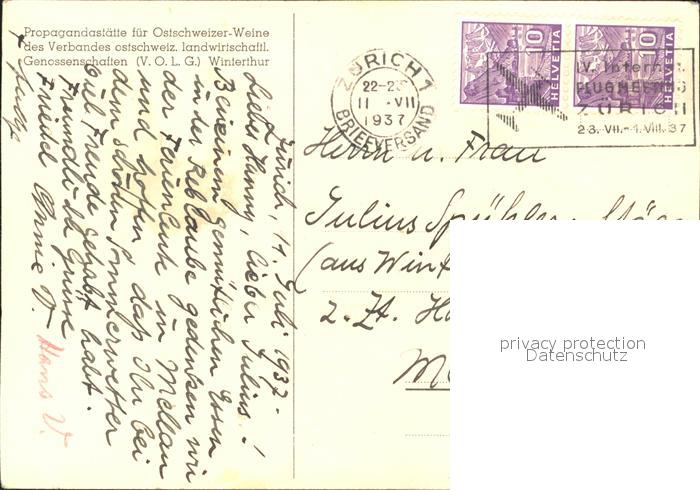 Propagandastätte für Ostschweizer-Weine
des Verbandes ostschweiz. landwirtschaftl.
Genossenschaften (V.O.L.G.) Winterthur
Zürich, 11. Juli 1937.
Liebe Hanny, lieber Julius!
Bei einem gemütlichen Essen
in der Reblaube gedenken wir
der Ferienleute in Mellau
und hoffen, dass Ihr bei
dem schönen Sommerwetter
viel Freude gehabt habt.
Freundliche Grüsse
Friedel Annie V. Hans V.
ZÜRICH 1
22-23
11.-VII
1937
BRIEFVERSAND
10 HELVETIA
10 HELVETIA
IV. Internat.
FLUGMEETING
ZÜRICH
23. VII.-1. VIII. 37
Herrn u. Frau
Julius Spühler
(aus Wint
z. Zt. Ha
Me
privacy protection
Datenschutz